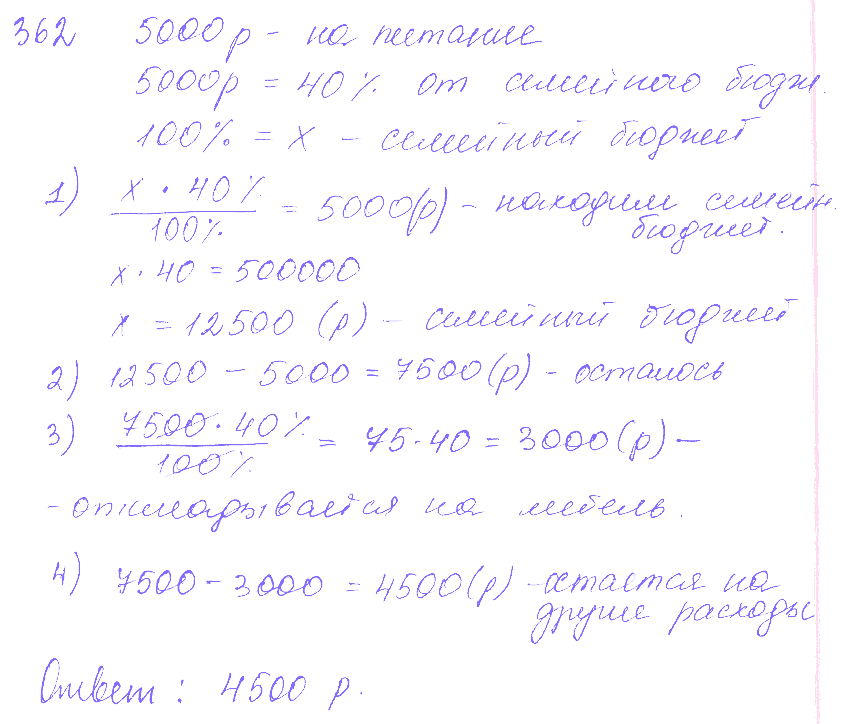 362 5000р - на питание
5000р = 40% от семейного бюдж.
100% = x - семейный бюджет
1) x · 40% / 100% = 5000(р) - находим семейн. бюджет.
x · 40 = 500000
x = 12500 (р) - семейный бюджет
2) 12500 - 5000 = 7500(р) - осталось
3) 7500 · 40% / 100% = 75 · 40 = 3000(р) -
- откладывается на мебель.
4) 7500 - 3000 = 4500(р) - остается на
другие расходы
Ответ: 4500 р.